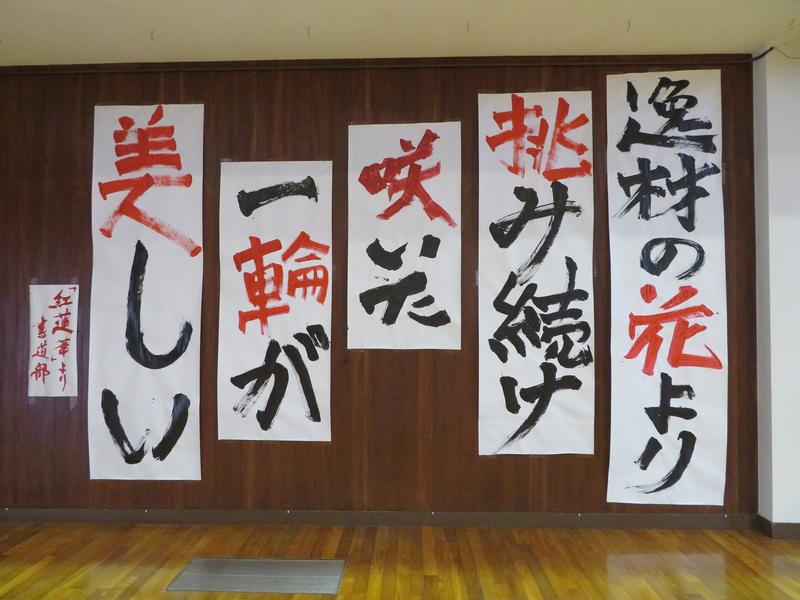 逸材の花より
挑み続け
咲いた
一輪が
美しい
「紅蓮華」より
書道部